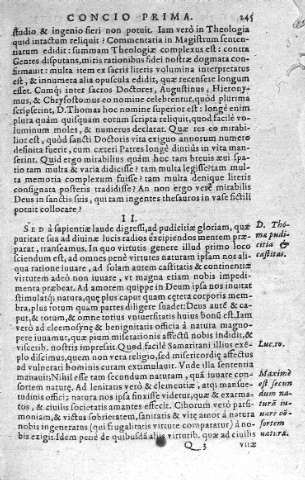 CONCIO PRIMA. 245
studio & ingenio fieri non potuit. Iam verò in Theologia
quid intactum reliquit? Commentaria in Magistrum senten-
tiarum edidit: summam Theologiæ complexus est: contra
Gentes disputans, miris rationibus fidei nostræ dogmata con-
firmauit: multa item ex sacris literis volumina interpretatus
est, & innumera alia opuscula edidit, quæ recensere longum
esset. Cumq; inter sacros Doctores, Augustinus, Hierony-
mus, & Chrysostomus eo nomine celebrentur, quod plurima
scripserint, D. Thomas hoc nomine superior est: longè enim
plura quàm quisquam eorum scripta reliquit, quod facilè vo-
luminum moles, & numerus declarat. Quæ res eò mirabi-
lior est, quòd sancti Doctoris vita exiguo annorum numero
definita fuerit, cum cæteri Patres longè diutiùs in vita man-
serint. Quid ergo mirabilius quàm hoc tam breuis æui spa-
tio tam multa & varia didicisse? tam multa legisse? tam mul-
ta memoria complexum fuisse? tam multa denique literis
consignata posteris tradidisse? An non ergo verè mirabilis
Deus in sanctis suis, qui tam ingentes thesauros in vase fictili
potuit collocare?
II.
SED à sapientiæ laude digressi, ad pudicitiæ gloriam, quæ
puritate sua ad diuinæ lucis radios excipiendos mentem præ-
parat, transeamus. In quo virtutis genere illud primo loco
sciendum est, ad omnes penè virtutes naturam ipsam nos ali-
qua ratione iuuare, ad solam autem castitatis & continentiæ
virtutem adeò non iuuare, vt magna etiam nobis impedi-
menta præbeat. Ad amorem quippe in Deum ipsa nos incitat
D. Tho-
mæ pudi-
citia &
castitas.
stimulatq; natura, quæ plus caput quàm cætera corporis mem-
bra, plus totum quàm partes diligere suadet: Deus autē & ca-
put, & totum, & omne totius vniuersitatis huius bonū est. Iam
verò ad eleemosynę & benignitatis officia à natura magno-
pere iuuamur, quæ pium miserationis affectū nobis indidit, &
viscerib. nostris impressit. Quod facilè Samaritani illius exē-
plo discimus, quem non vera religio, sed misericordię affectus
ad vulnerati hominis curam extimulauit. Vnde illa sententia
Luc. 10.
manauit: Nihil esse tam secundum naturam, quàm iuuare con-
sortem naturę. Ad lenitatis verò & clementiæ, atq; mansue-
tudinis officia natura nos ipsa finxisse videtur, quæ & exarma-
tos, & ciuilis societatis amantes effecit. Ciborum verò parsi-
moniam, & victus sobrietatem, sanitatis & vitę amor à natura
nobis ingeneratus (qui frugalitatis virtute comparatur) à no-
bis exigit. Idem penè de quibusdā aliis virtutib. quæ ad ciuilis
Maximè
est secun
dum na-
turā in
iuuare cō-
sortem
naturæ.
Q 3 vitæ